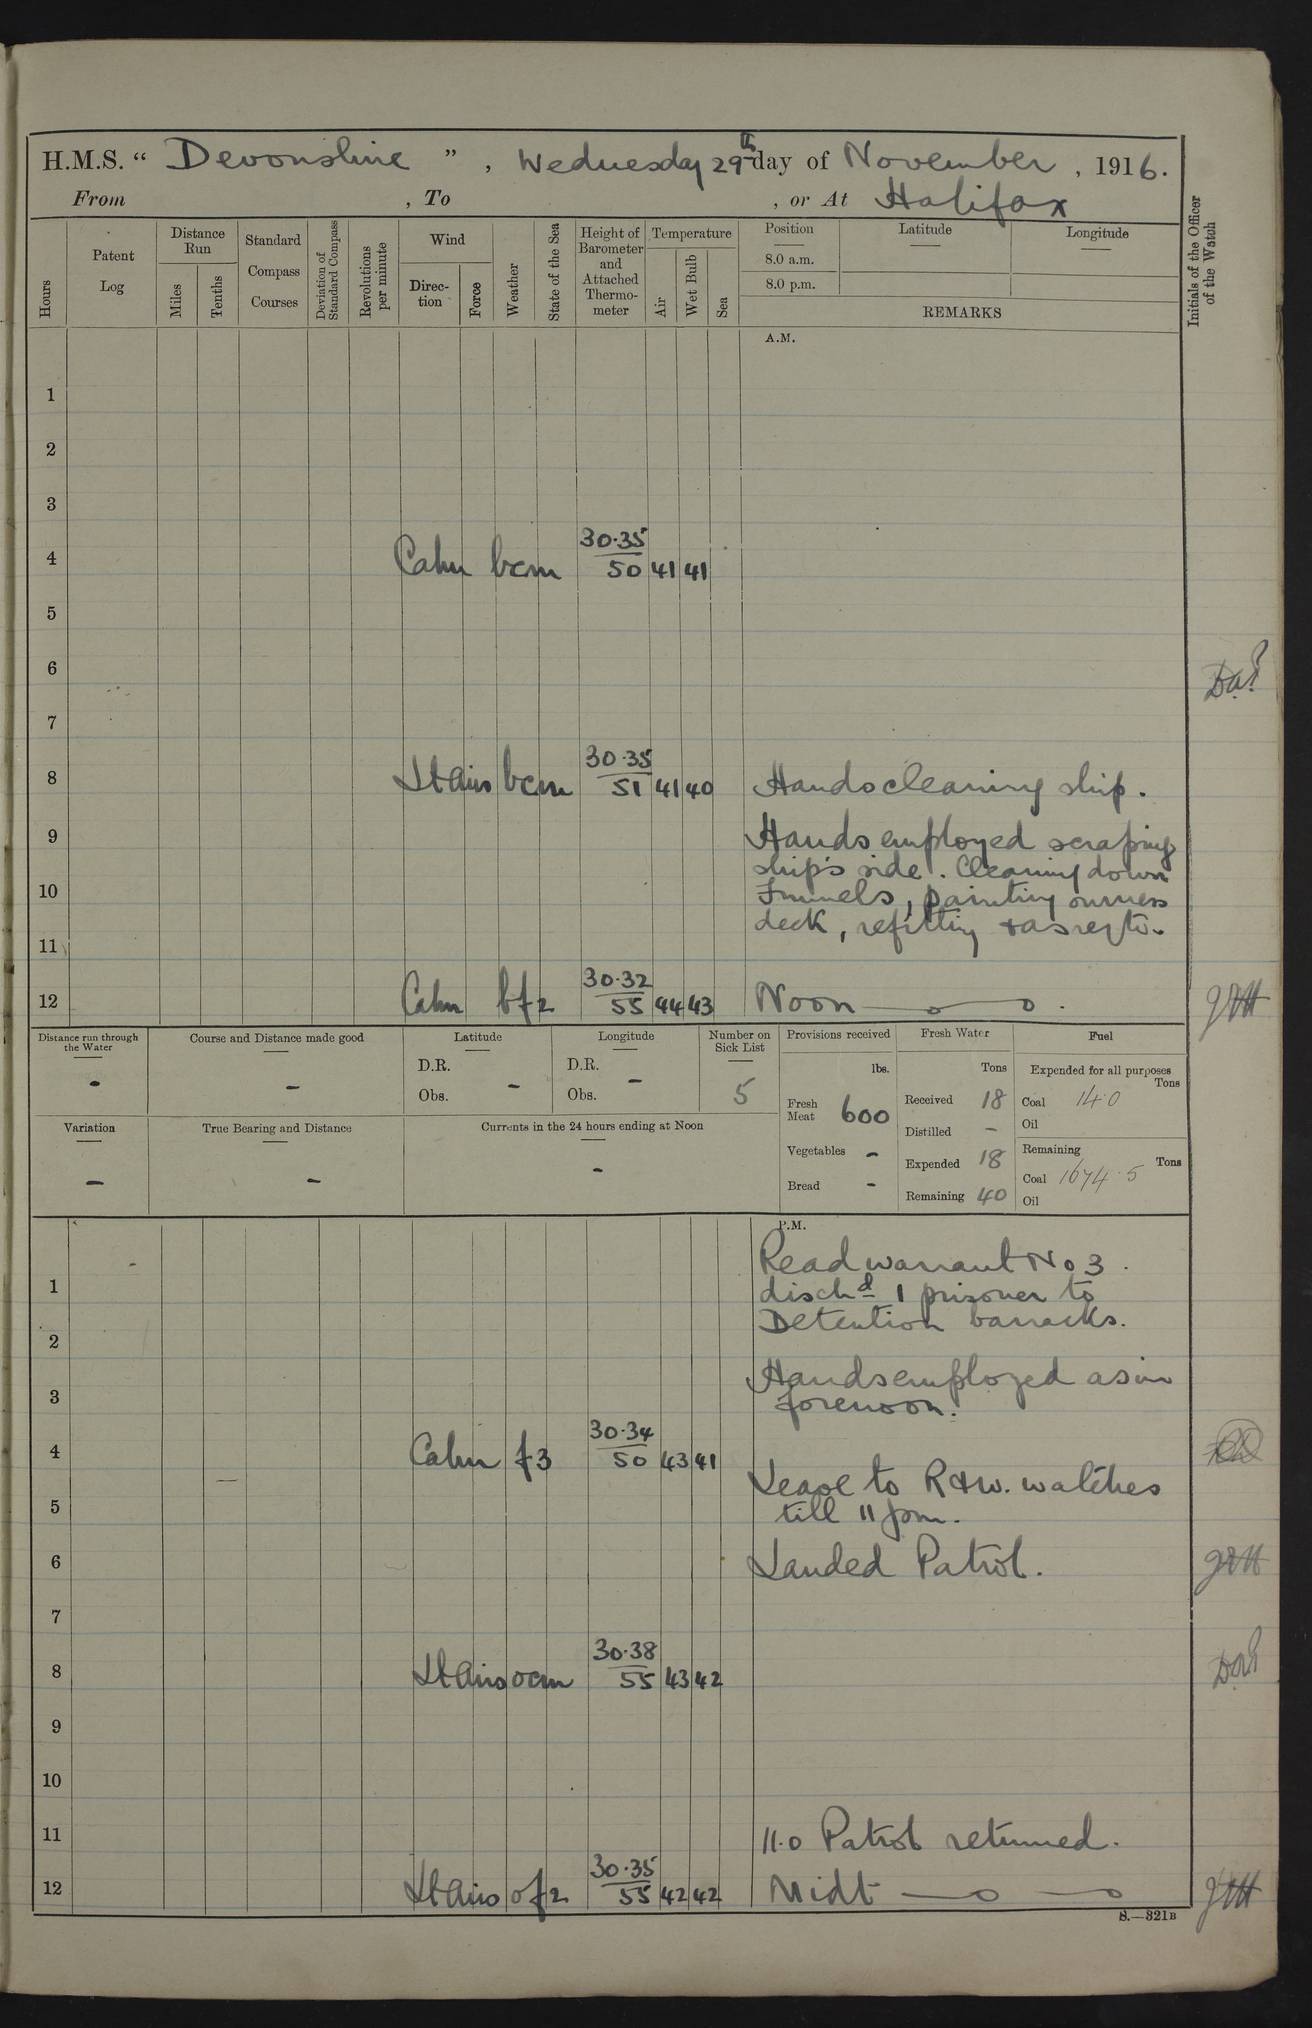 H.M.S. “ Devonshire ” , Wednesday 29th day of November , 1916.
From , To , or At Halifax
Hours
Patent Log
Distance Run
Miles
Tenths
Standard Compass Courses
Deviation of Standard Compass
Revolutions per minute
Wind
Direc-tion
Force
Weather
State of the Sea
Height of Barometer and Attached Thermo-meter
Temperature
Air
Wet Bulb
Sea
Position Latitude Longitude
8.0 a.m.
8.0 p.m.
REMARKS
Initials of the Officer of the Watch
A.M.
1
2
3
30.35
4 Calm bcm 50 41 41
5
6
7
30.35
8 Lt airs bcm 51 41 40 Hands cleaning ship.
9 Hands employed scraping
ship's side. Cleaning down
10 Funnels, painting
deck, refitting & as req to.
11
30.32
12 Calm bf2 55 44 43 Noon
Distance run through the Water -
Course and Distance made good -
Latitude
D.R.
Obs. -
Longitude
D.R.
Obs. -
Number on Sick List
5
Provisions received
lbs.
Fresh Meat 600
Vegetables -
Bread -
Fresh Water
Tons
Received 18
Distilled -
Expended 18
Remaining 40
Fuel
Expended for all purposes
Tons
Coal 14.0
Oil
Remaining
Tons
Coal 1674.5
Oil
Variation -
True Bearing and Distance -
Currents in the 24 hours ending at Noon -
P.M.
Read warrant No 3.
1 disch'd 1 prisoner to
2 Detention barracks.
Hands employed as in
3 forenoon.
30.34
4 Calm f3 50 43 41
Leave to R & W. watches
5 till 11 pm.
6 Landed Patrol.
7
30.38
8 Lt airs ocm 55 43 42
9
10
11 11.0 Patrol returned.
30.35
12 Lt airs of2 55 42 42 Midt
S.—321B